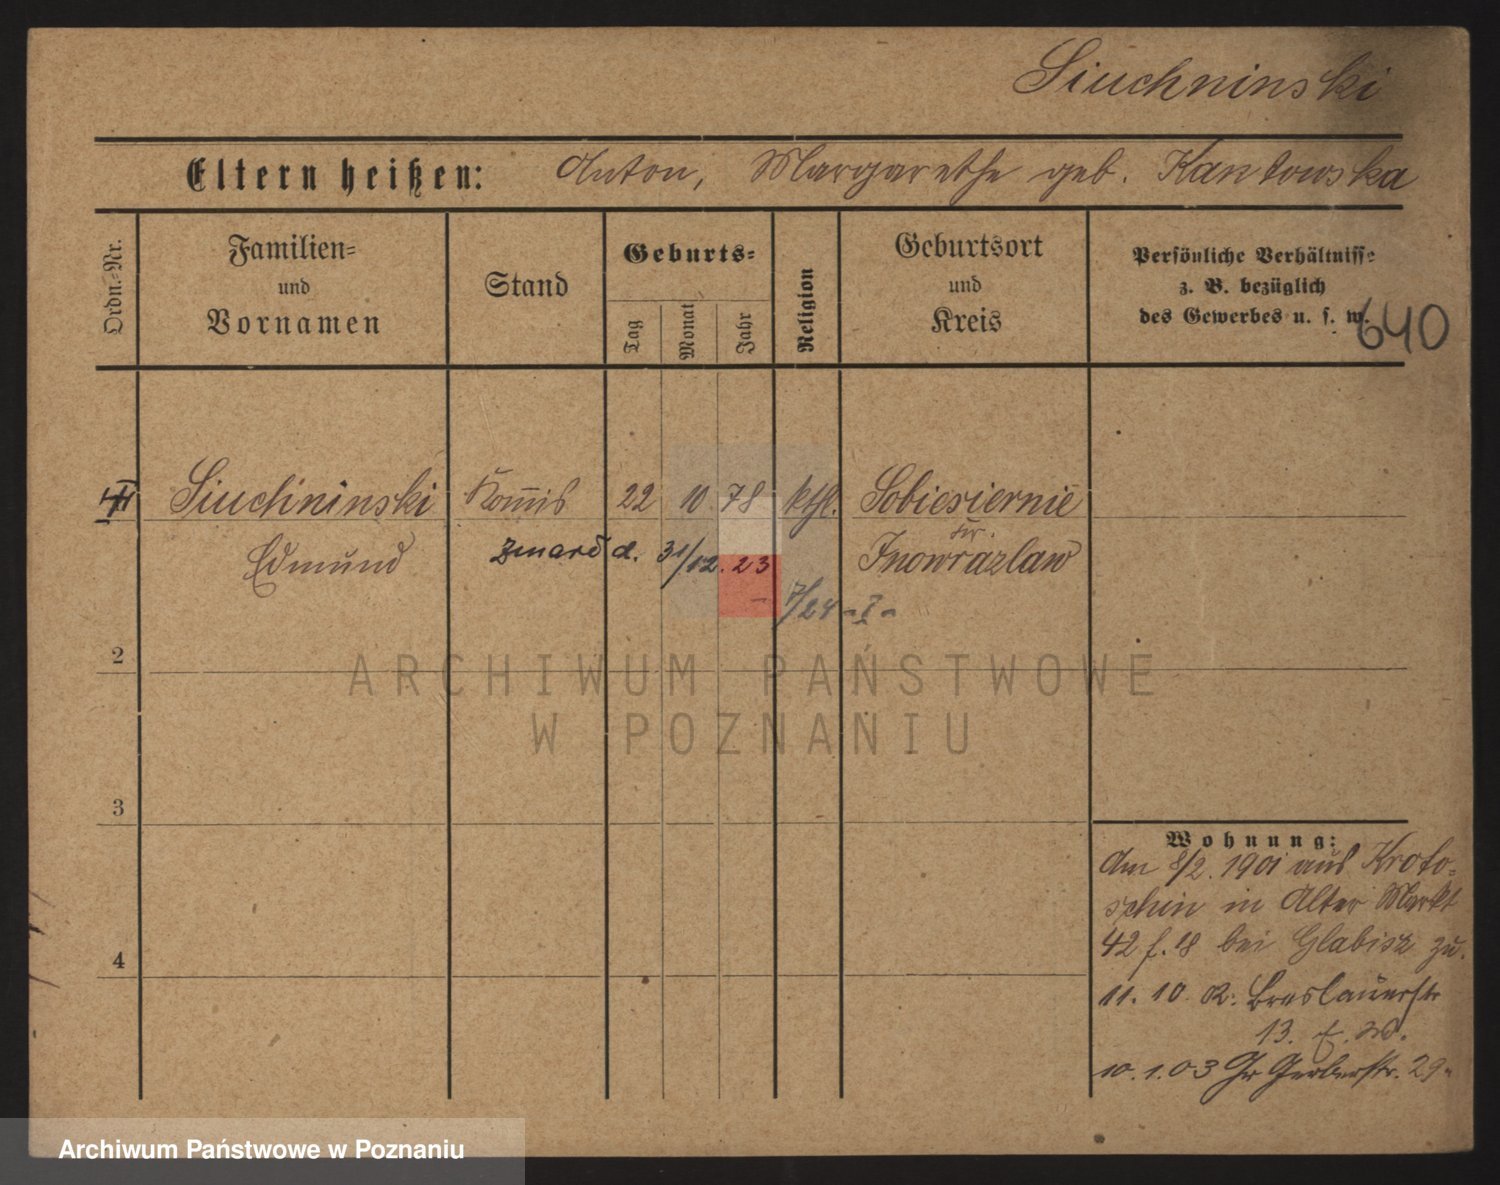 Siuchninski
Eltern heißen: Anton, Margarethe geb. Kantowska
Ordn.-Nr.
Familien-
und
Vornamen
Stand
Geburts-
Tag
Monat
Jahr
Religion
Geburtsort
und
Kreis
Persönliche Verhältnisse
z. B. bezüglich
des Gewerbes u. s. w.
640
Siuchninski Kommis 22 10 78 kthl. Sobiesiernie
Kr.
Edmund zmarł d. 31/12. 23 Inowrazlaw
7/24 -I-
2
3
4
Wohnung:
Am 8/2. 1901 aus Kroto-
schin in Alter Markt
42 f. 18 bei Glabisz zu.
11. 10. R. Breslauerstr
13.
10. 1. 03 Gr Gerberstr. 29
ARCHIWUM PAŃSTWOWE
W POZNANIU
Archiwum Państwowe w Poznaniu